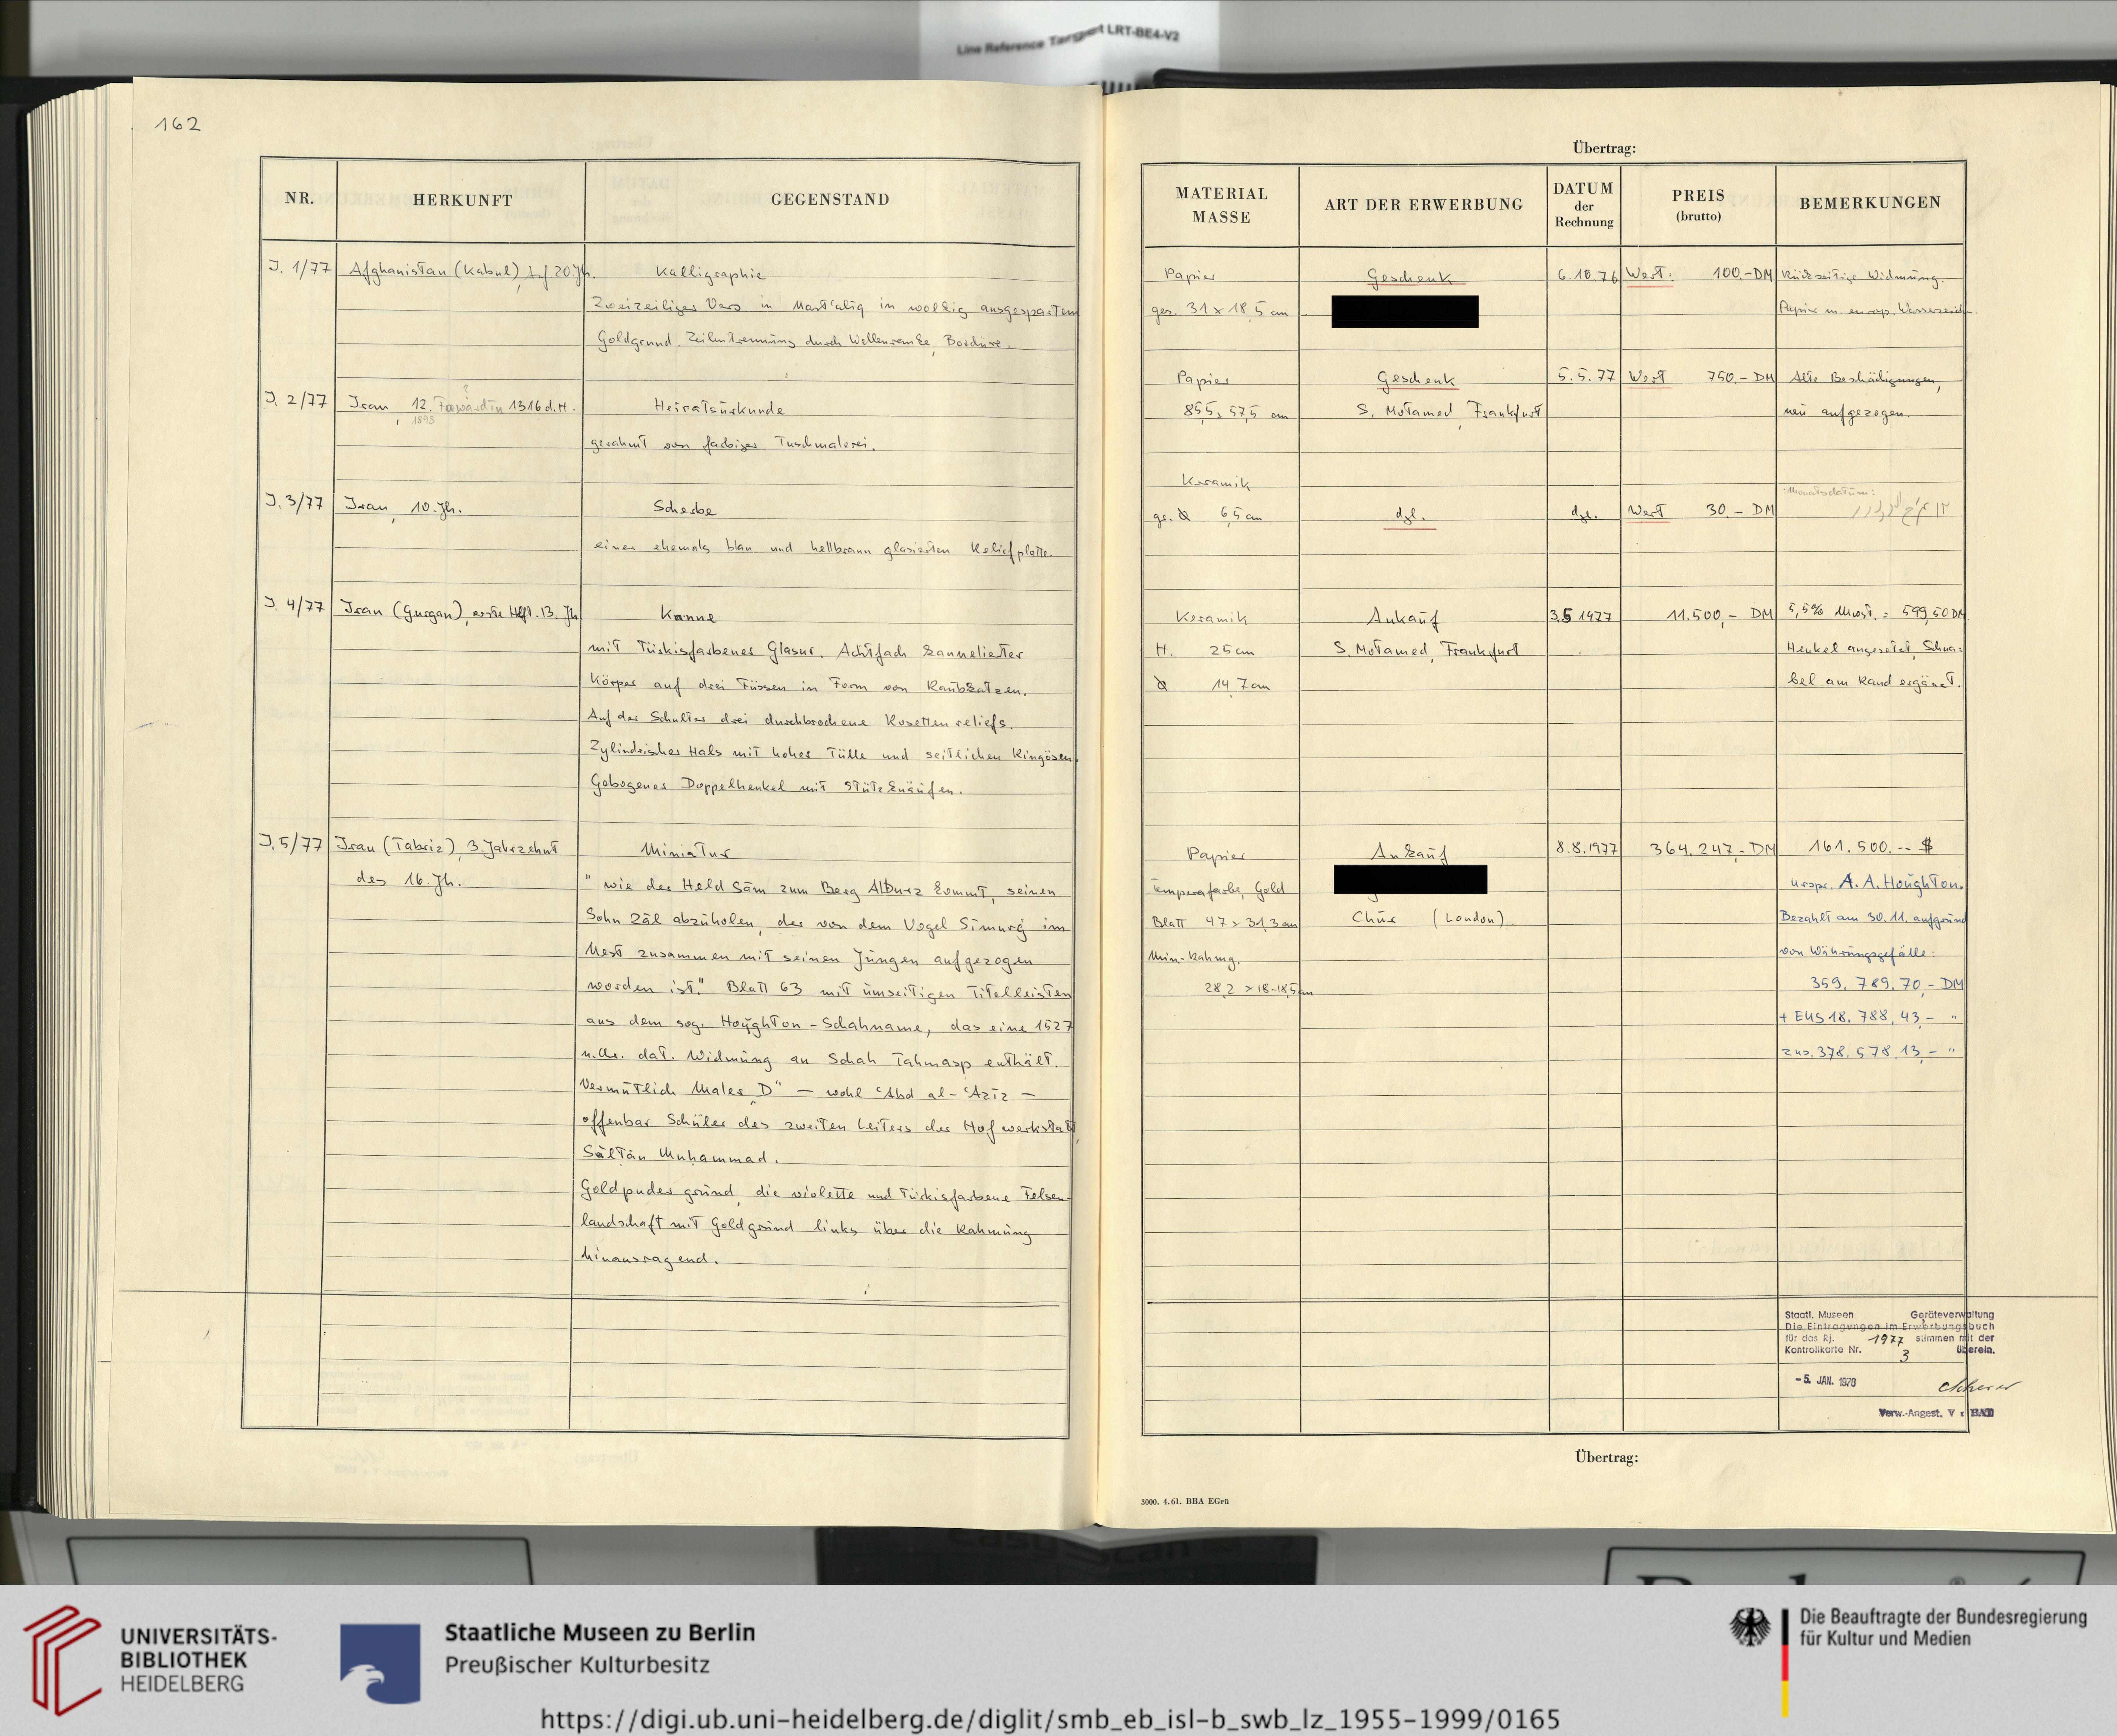 Line Reference Target LRT-BE4-V2
162
NR. HERKUNFT GEGENSTAND
J. 1/77 Afghanistan (Kabul), 20. Jh. Kalligraphie
Zweizeiliger Vers in Nasta'aliq in wolkig ausgespartem
Goldgrund. Zeilentrennung durch Wellenranke, Bordüre.
J. 2/77 Iran, 12. 1316 d.H. Heiratsurkunde
1898
gerahmt von farbiger Tuschmalerei.
J. 3/77 Iran, 10. Jh. Scherbe
einer ehemals blau und hellbraun glasierten Reliefplatte.
J. 4/77 Iran (Gurgan), erste Hlft. 13. Jh. Kanne
mit türkisfarbener Glasur. Achtfach kannelierter
Körper auf drei Füssen in Form von Raubkatzen.
Auf der Schulter drei durchbrochene Rosettenreliefs.
Zylindrischer Hals mit hoher Tülle und seitlichen Ringösen.
Gebogener Doppelhenkel mit Stützknäufen.
J. 5/77 Iran (Tabriz), 3. Jahrzehnt Miniatur
des 16. Jh. "wie der Held Sām zum Berg Alburz kommt, seinen
Sohn Zāl abzuholen, der von dem Vogel Sīmurġ im
Nest zusammen mit seinen Jungen aufgezogen
worden ist." Blatt 63 mit umseitigen Titelleisten
aus dem sog. Houghton-Schahname, das eine 1527
n.Chr. dat. Widmung an Schah Tahmasp enthält.
Vermutlich Maler „D" – wohl ʿAbd al-ʿAzīz –
offenbar Schüler des zweiten Leiters der Hofwerkstatt,
Sulṭān Muḥammad.
Goldpudergrund, die violette und türkisfarbene Felsen-
landschaft mit Goldgrund links über die Rahmung
hinausragend.
Übertrag:
MATERIAL MASSE ART DER ERWERBUNG DATUM der Rechnung PREIS (brutto) BEMERKUNGEN
Papier Geschenk 6.10.76 Wert: 100,-DM Rückseitige Widmung.
ges. 31 x 18,5 cm Papier m. europ. Wasserzeich.
Papier Geschenk 5.5.77 Wert 750,- DM Alte Beschädigungen,
85,5 x 57,5 cm S. Motamed, Frankfurt neu aufgezogen.
Keramik
Monatsdatum:
gr. Ø 6,5 cm dgl. dgl. Wert 30,- DM
Keramik Ankauf 3.5.1977 11.500,- DM 5,5% Mwst. = 599,50 DM
H. 25 cm S. Motamed, Frankfurt Henkel angesetzt, Schna-
Ø 14,7 cm bel am Rand ergänzt.
Papier Ankauf 8.8.1977 364.247,- DM 161.500.-- $
Temperafarbe, Gold urspr. A. A. Houghton.
Blatt 47 x 31,3 cm Chur (London) Bezahlt am 30.11. aufgrund
Min-Rahmg. von Währungsgefälle:
28,2 x 18-18,5 cm 359.789,70,- DM
+ EUS 18.788,43,- "
zus. 378.578,13,- "
Staatl. Museen Geräteverwaltung
Die Eintragungen im Erwerbungsbuch
für das Rj. 1977 stimmen mit der
Kontrollkarte Nr. 3 überein.
- 5. JAN. 1978
Verw.-Angest. V c BAT
Übertrag:
3000. 4.61. BBA EGrü
UNIVERSITÄTS-
BIBLIOTHEK
HEIDELBERG
Staatliche Museen zu Berlin
Preußischer Kulturbesitz
Die Beauftragte der Bundesregierung
für Kultur und Medien
https://digi.ub.uni-heidelberg.de/diglit/smb_eb_isl-b_swb_lz_1955-1999/0165